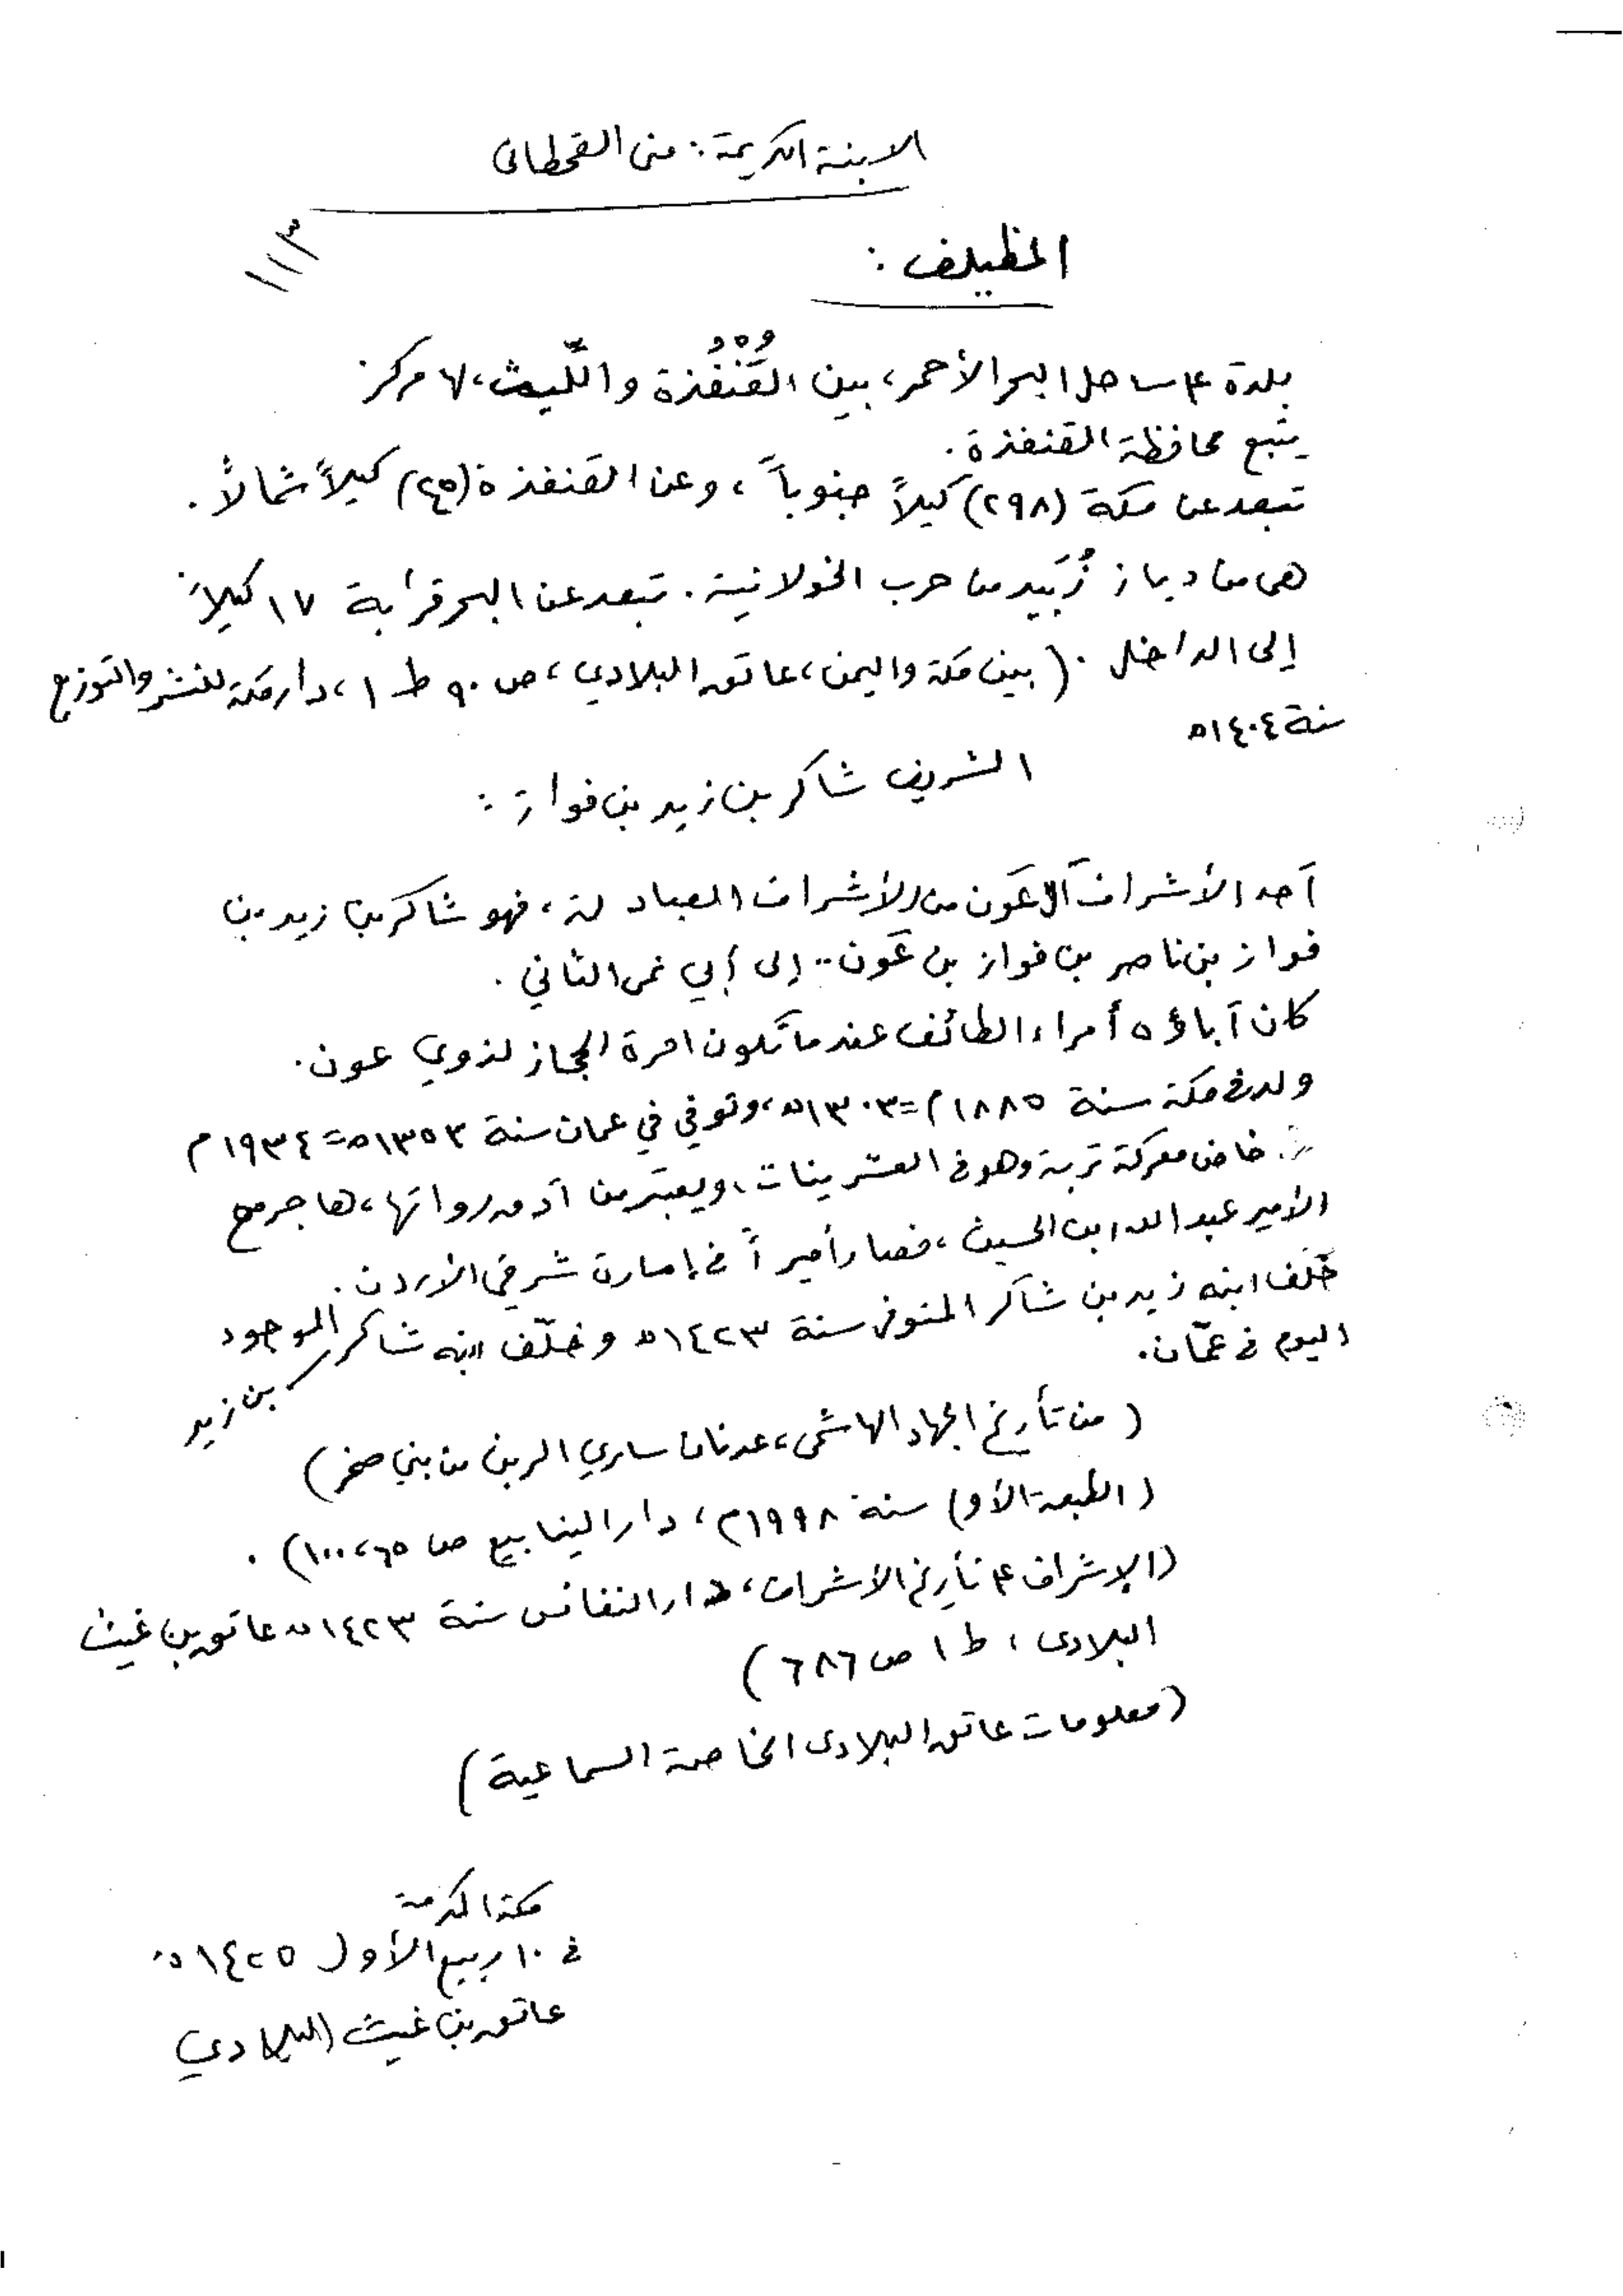 الابنة الكريمة: منى القحطاني
١١٣
المظيلف:
بلدة على ساحل البحر الأحمر، بين القُنْفُذة والَّليث، لها مركز
يتبع محافظة القنفذة.
تبعد عن مكة (٢٩٨) كيلاً جنوباً، وعن القنفذة (٤٥) كيلاً شمالاً.
هي من ديار زُبَيد من حرب الخولانية. تبعد عن البحر قرابة ١٧ كيلاً
إلى الداخل. (بين مكة واليمن، عاتق البلادي، ص ٩٠ ط ١، دار مكة للنشر والتوزيع
سنة ١٤٠٤ه
الشريف شاكر بن زيد بن فواز:
أحد الأشراف آل عَون من الأشراف العبادلة، فهو شاكر بن زيد بن
فواز بن ناصر بن فواز بن عَون.. إلى أبي نمي الثاني.
كان آباؤه أمراء الطائف عندما تكون امرة الحجاز لذوي عون.
ولد في مكة سنة ١٨٨٥م=١٣٠٣ه، وتوفي في عمان سنة ١٣٥٣ه=١٩٣٤م
خاض معركة تربة وهو في العشرينات، ويعتبر من رواتها، هاجر مع
الأمير عبد الله بن الحسين، فصار أميراً في إمارة شرقي الأردن.
خَلَف ابنه زيد بن شاكر المتوفى سنة ١٤٢٣ه وخلّف ابنه شاكر بن زيد الموجود
اليوم في عمّان.
(من تأريخ الجهاد الهاشمي، عدنان ساري الزبن من بني صخر)
(الطبعة الأولى سنة ١٩٩٨م، دار الينابيع ص ٦٥، ١٠٠).
(الإشراف على تأريخ الأشراف، دار النفائس سنة ١٤٢٣ه عاتق بن غيث
البلادي، ط ١ ص ٦٨٦)
(معلومات عاتق البلادي الخاصة السماعية)
مكة المكرمة
في ١٠ ربيع الأول ١٤٢٥ه
عاتق بن غيث البلادي